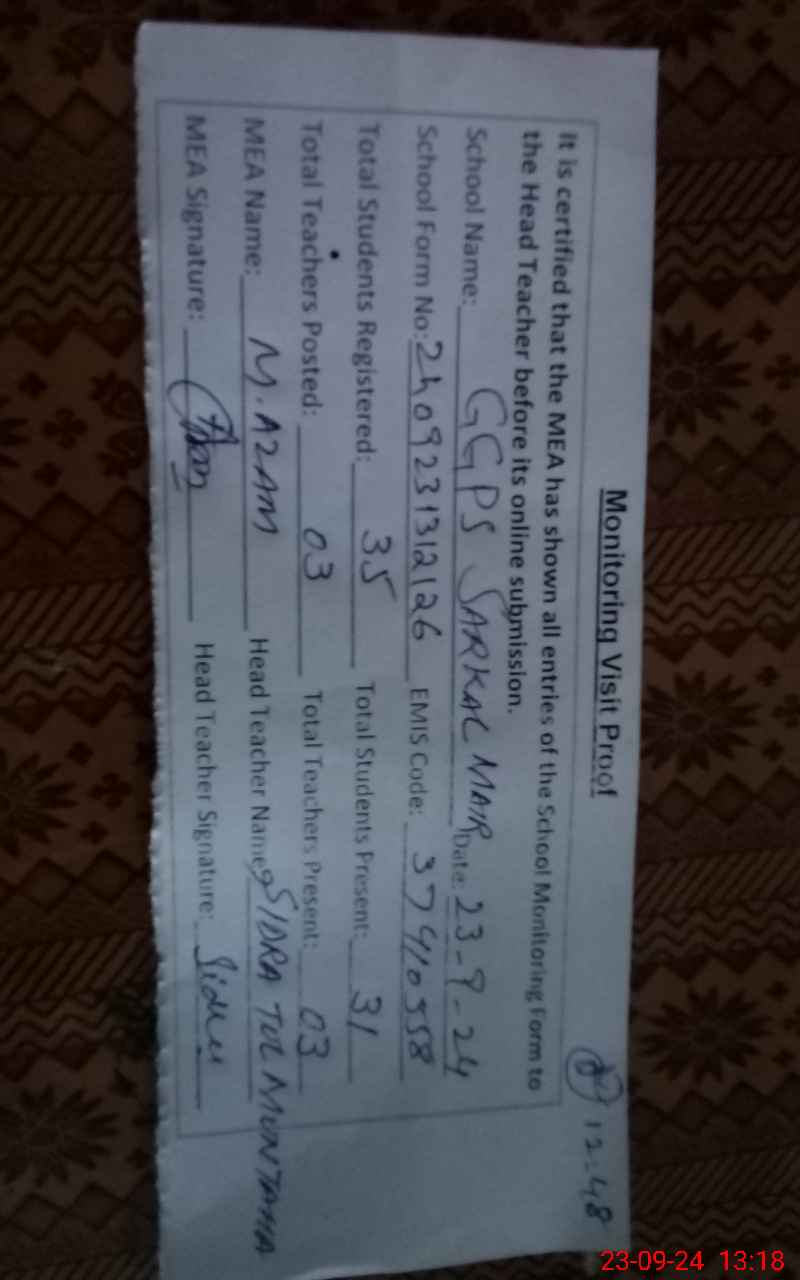 Monitoring Visit Proof
12:48
It is certified that the MEA has shown all entries of the School Monitoring Form to
the Head Teacher before its online submission.
School Name: GGPS SARKAL MAIR Date: 23-9-24
School Form No: 2409231312126 EMIS Code: 37410558
Total Students Registered: 35 Total Students Present: 31
Total Teachers Posted: 03 Total Teachers Present: 03
MEA Name: M. AZAM Head Teacher Name: SIDRA TUL MUNTAHA
MEA Signature: Head Teacher Signature:
23-09-24 13:18